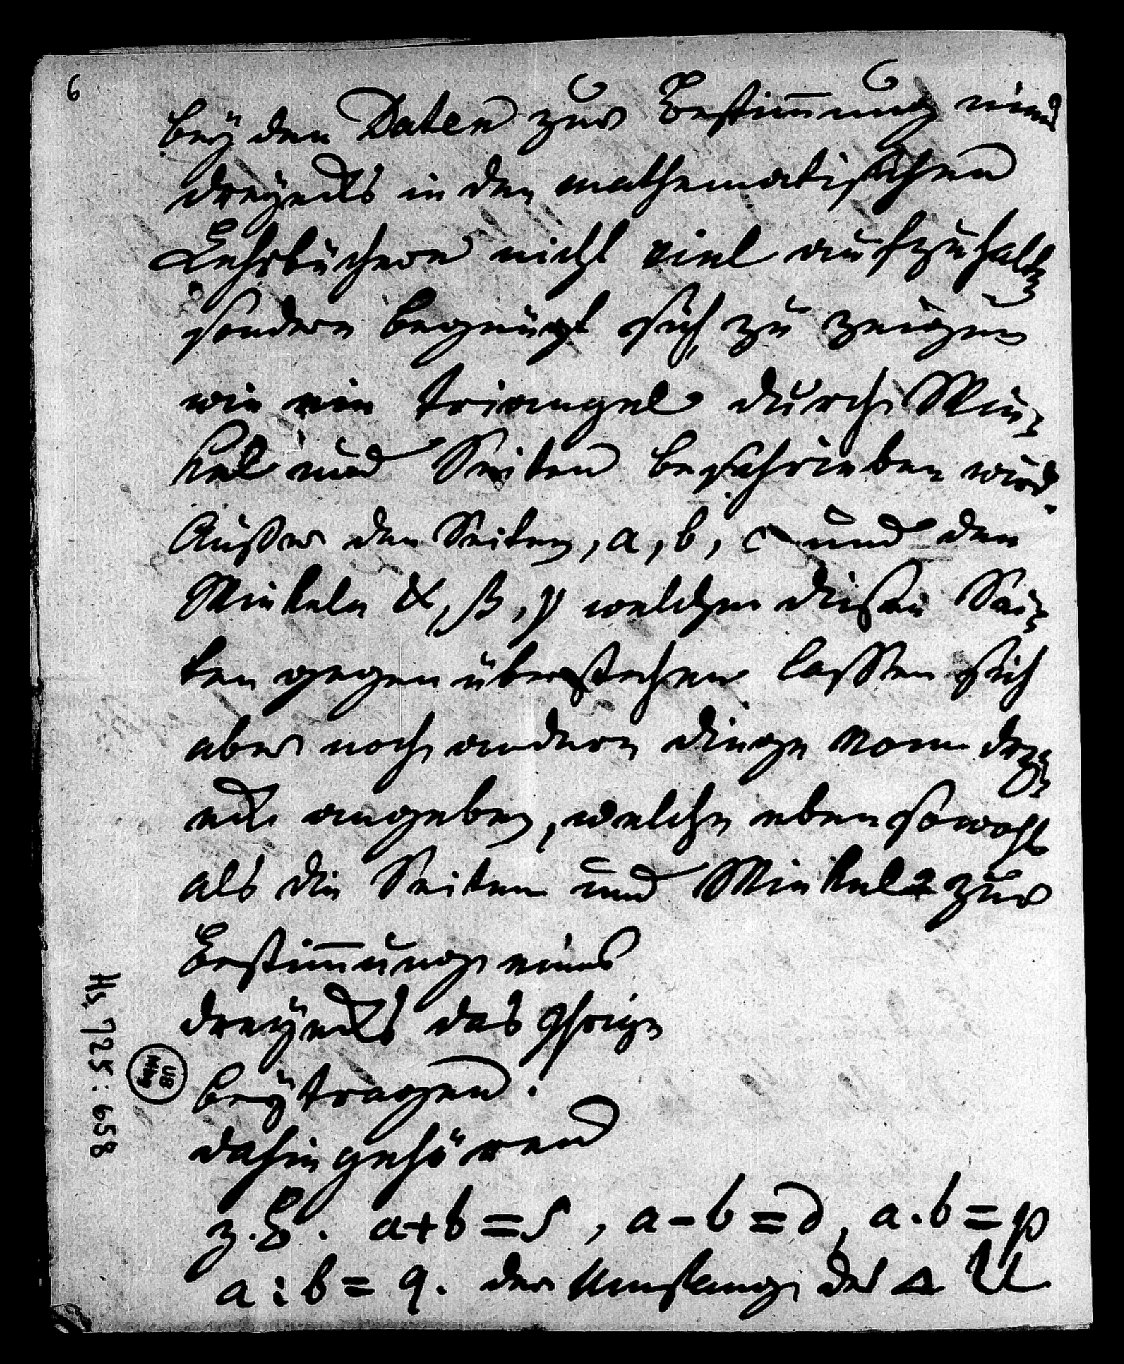 6
bey den Daten zur Bestimmung eines
dreyecks in den mathematischen
Lehrbüchern nicht viel aufzuhalten
sondern begnügt sich zu zeigen
wie ein Triangel durch Win-
kel und Seiten beschrieben wird.
Außer den Seiten, a, b, c und den
Winkeln α, β, γ welchen diesen Sei-
ten gegenüberstehen lassen sich
aber noch andern dinge vom drey-
eck angeben, welche eben sowohl
als die Seiten und Winkel zur
Bestimmung eines
dreyecks das Ihrige
beytragen.
dahin gehören
z.B. a+b=S, a-b=d, a.b=p
a:b=q. der Umfang des Δ U
Hs. 725:658
UB
Mbg